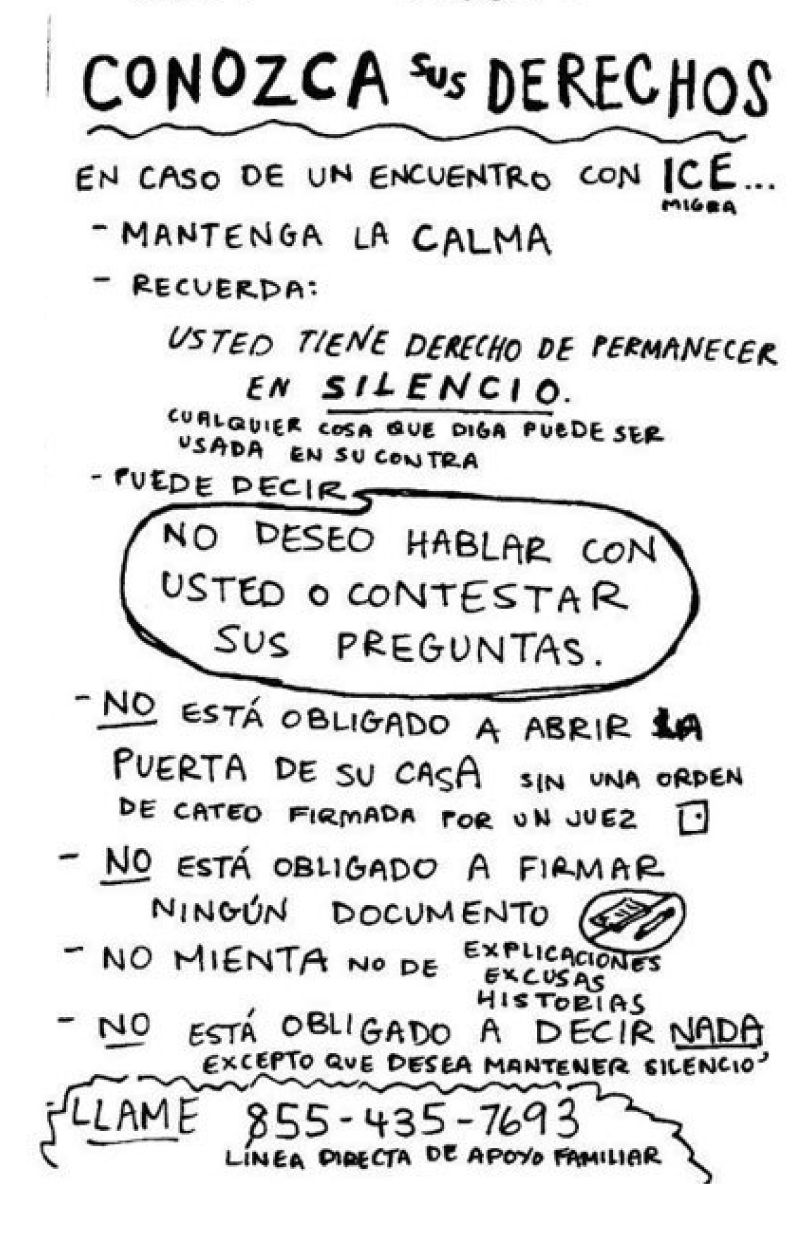 CONOZCA SUS DERECHOS
EN CASO DE UN ENCUENTRO CON ICE...
MIGRA
- MANTENGA LA CALMA
- RECUERDA:
USTED TIENE DERECHO DE PERMANECER
EN SILENCIO.
CUALQUIER COSA QUE DIGA PUEDE SER
USADA EN SU CONTRA
- PUEDE DECIR
NO DESEO HABLAR CON
USTED O CONTESTAR
SUS PREGUNTAS.
- NO ESTÁ OBLIGADO A ABRIR LA
PUERTA DE SU CASA SIN UNA ORDEN
DE CATEO FIRMADA POR UN JUEZ
- NO ESTÁ OBLIGADO A FIRMAR
NINGÚN DOCUMENTO
- NO MIENTA NO DE EXPLICACIONES
EXCUSAS
HISTORIAS
- NO ESTÁ OBLIGADO A DECIR NADA
EXCEPTO QUE DESEA MANTENER SILENCIO'
LLAME 855-435-7693
LÍNEA DIRECTA DE APOYO FAMILIAR